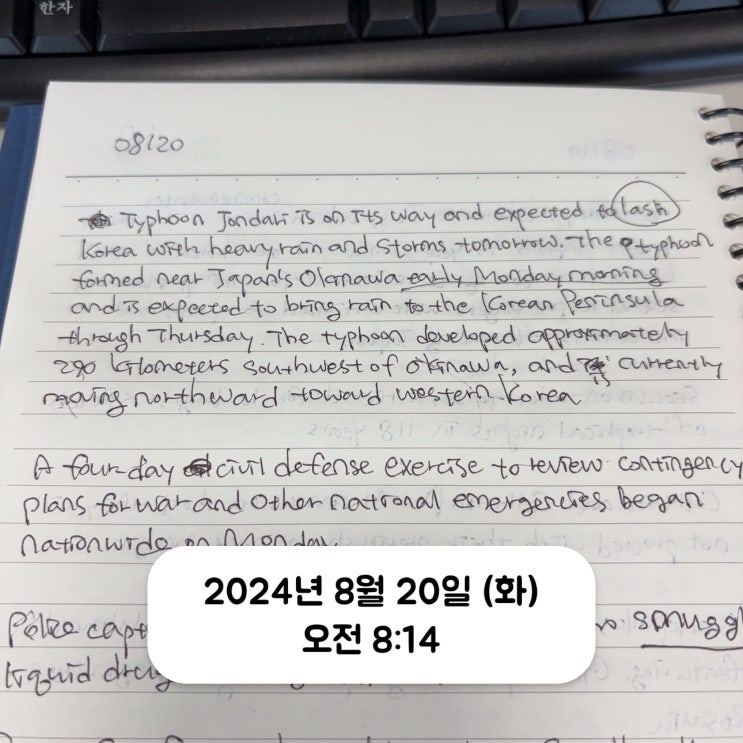 한자
08/20
Typhoon Jondari is on its way and expected to lash
Korea with heavy rain and storms tomorrow. The typhoon
formed near Japan's Okinawa early Monday morning
and is expected to bring rain to the Korean Peninsula
through Thursday. The typhoon developed approximately
290 kilometers southwest of okinawa, and is currently
moving northward toward western Korea
A four-day civil defense exercise to review contingency
plans for war and other national emergencies began
nationwide on Monday.
2024년 8월 20일 (화)
오전 8:14
Police capt
smuggl
liquid drug